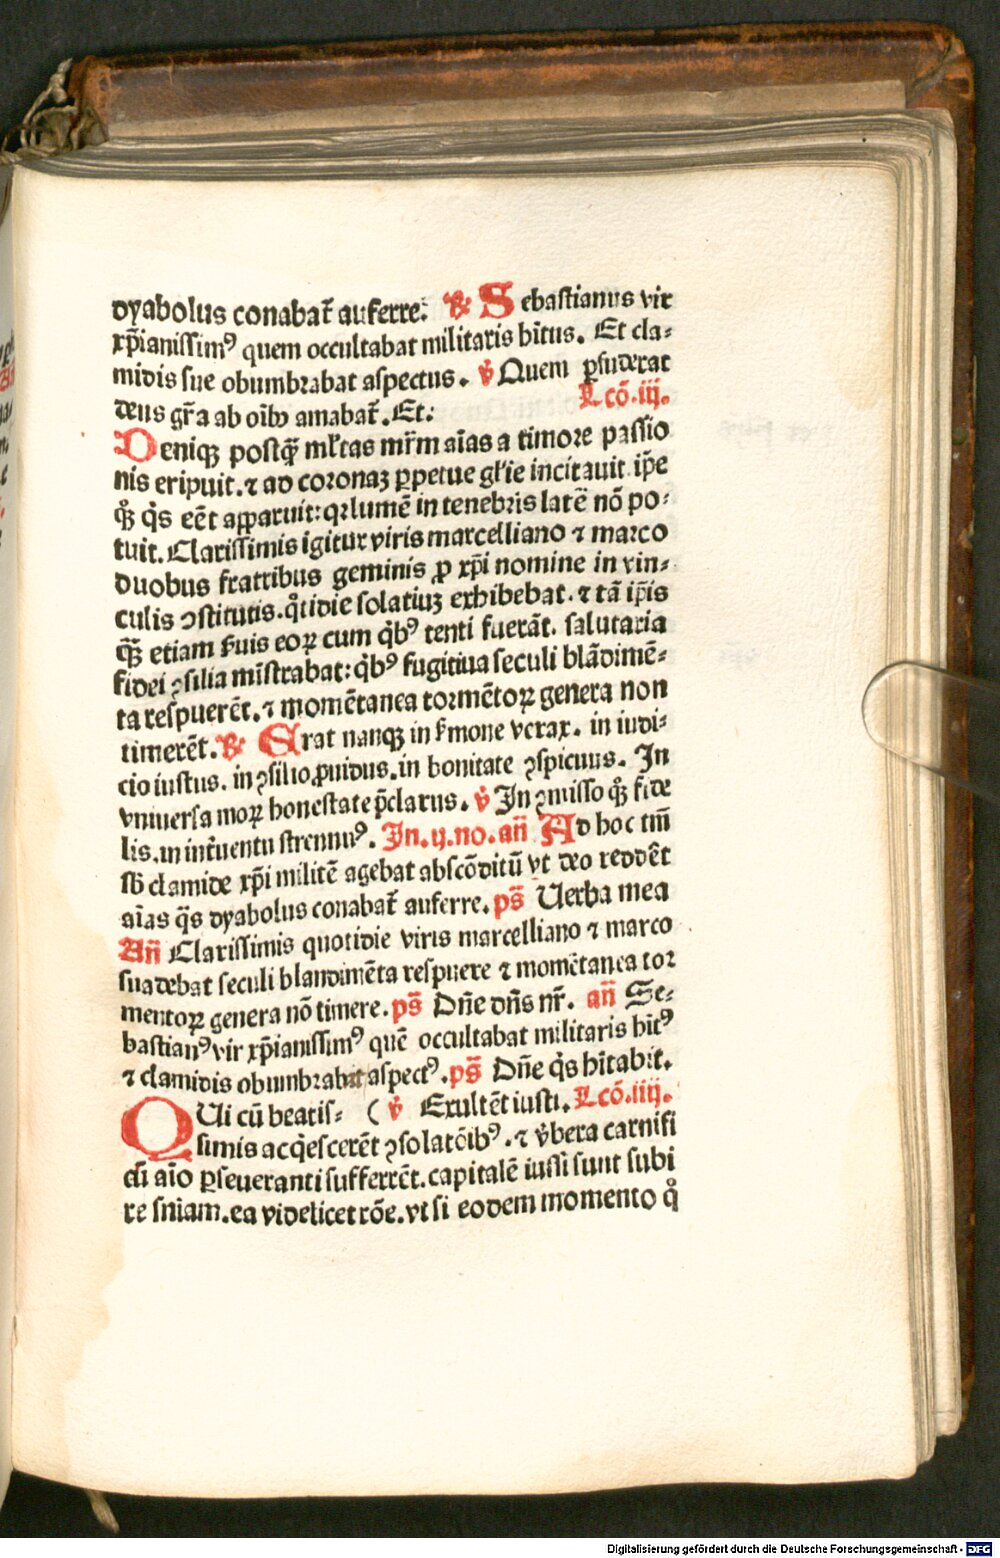 dyabolus conabat᷑ auferre. ℟ Sebastianus vir
xp̄ianissimꝰ quem occultabat militaris hītus. Et cla⸗
midis sue obumbrabat aspectus. ℣ Quem ꝑfuderat
deus gr̄a ab oībꝰ amabat᷑. Et:
Lcō.iij.
Deniqꝫ postꝙ̄ ml̄tas mr̄m aīas a timore passio
nis eripuit. ⁊ ad coronaꝫ ꝑpetue gl̄ie incitauit ip̄e
qꝫ q̄s eēt apparuit: qꝛ lumē in tenebris latē nō po⸗
tuit. Clarissimis igitur viris marcelliano ⁊ marco
duobus fratribus geminis ꝓ xp̄i nomine in vin⸗
culis ꝯstitutis. qͦtidie solatiuꝫ exhibebat. ⁊ tā ip̄is
ꝙ̄ etiam ẜuis eoꝝ cum qͥbꝰ tenti fuerāt. salutaria
fidei ꝯsilia mīstrabat: qͥbꝰ fugitiua seculi blādimē⸗
ta respuerēt. ⁊ momētanea tormētoꝝ genera non
timerēt. ℟ Erat nanqꝫ in ẜmone verax. in iudi⸗
cio iustus. in ꝯsilio ꝓuidus. in bonitate ꝯspicuus. In
vniuersa moꝝ honestate p̄clarus. ℣ In ꝯmisso qꝫ fide
lis. in int̄uentu strennuꝰ. In.ij.no.an̄ Ad hoc tm̄
sb̄ clamide xp̄i militē agebat abscōditū vt deo reddēt
aīas q̄s dyabolus conabat᷑ auferre. ps̄ Uerba mea
An̄ Clarissimis quotidie viris marcelliano ⁊ marco
suadebat seculi blandimēta respuere ⁊ momētanea tor
mentoꝝ genera nō timere. ps̄ Dn̄e dn̄s nr̄. an̄ Se⸗
bastianꝰ vir xp̄ianissimꝰ quē occultabat militaris hītꝰ
⁊ clamidis obumbrabat aspectꝰ. ps̄ Dn̄e q̄s hītabit.
QUi cū beatis⸗ ( ℣ Exultēt iusti. Lcō.iiij.
simis acqͥescerēt ꝯsolatōibꝰ. ⁊ v̄bera carnifi
cū aīo ꝑseueranti sufferrēt. capitalē iussi sunt subi
re sn̄iam. ea videlicet rōe. vt si eodem momento qͦ
Digitalisierung gefördert durch die Deutsche Forschungsgemeinschaft - DFG